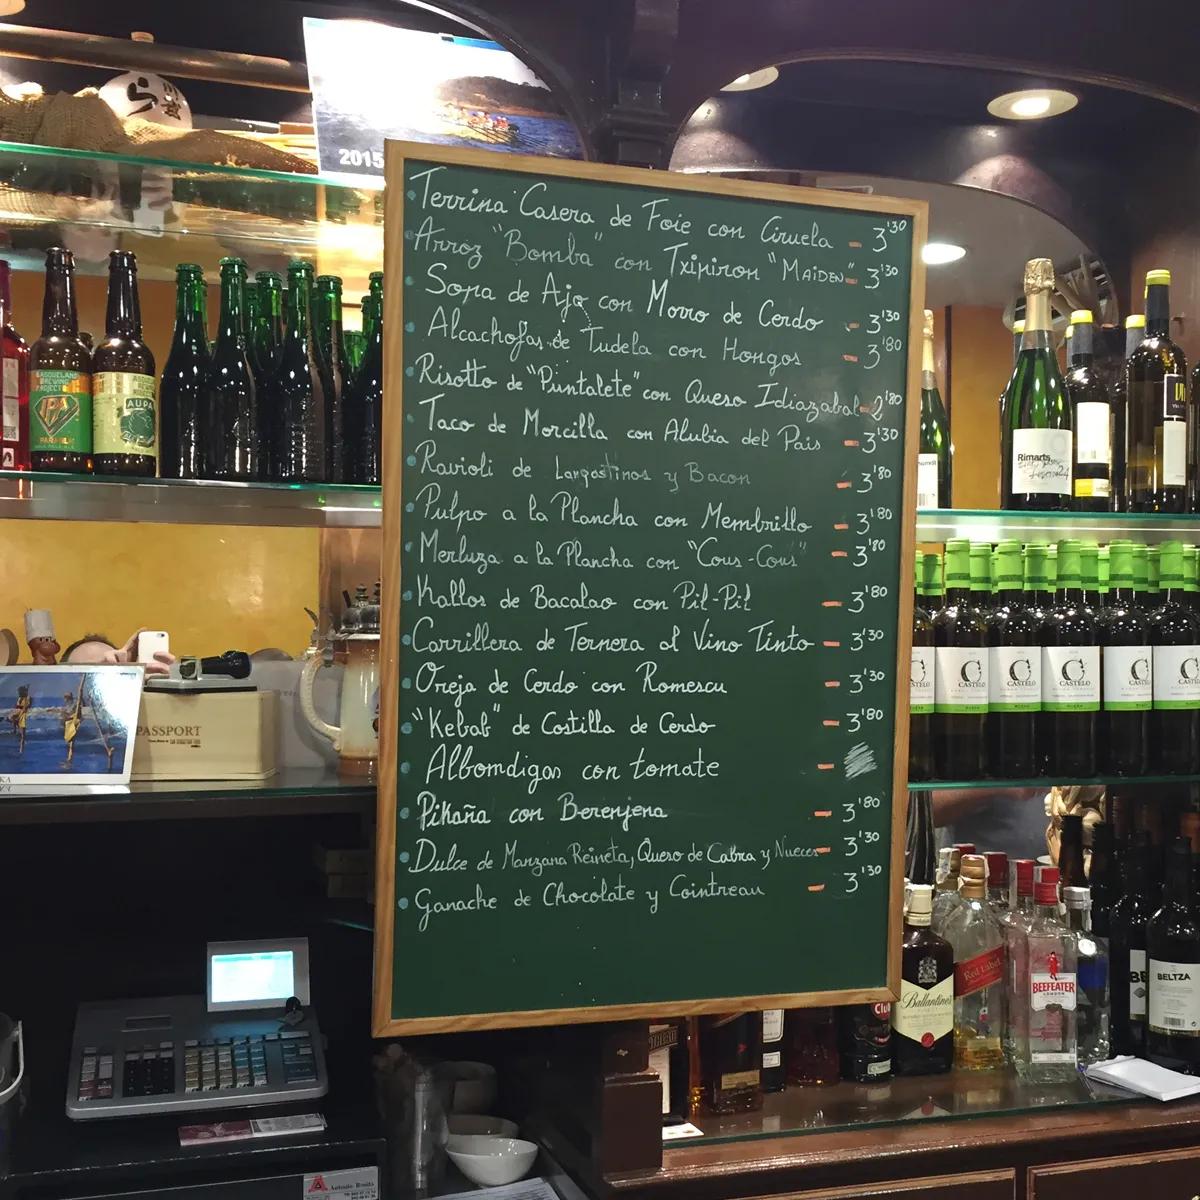 2015
Terrina Casera de Foie con Ciruela - 3'30
Arroz "Bomba" con Txipiron "MAiDEN" - 3'30
Sopa de Ajo con Morro de Cerdo - 3'30
Alcachofas de Tudela con Hongos - 3'80
Risotto de "Puntalete" con Queso Idiazabal - 2'80
Taco de Morcilla con Alubia del Pais - 3'30
Ravioli de Langostinos y Bacon - 3'80
Pulpo a la Plancha con Membrillo - 3'80
Merluza a la Plancha con "Cous-Cous" - 3'80
Kallos de Bacalao con Pil-Pil - 3'80
Carrillera de Ternera al Vino Tinto - 3'30
Oreja de Cerdo con Romescu - 3'30
"Kebab" de Costilla de Cerdo - 3'80
Albondigas con tomate -
Pikaña con Berenjena - 3'80
Dulce de Manzana Reineta, Queso de Cabra y Nueces - 3'30
Ganache de Chocolate y Cointreau - 3'30
BASQUELAND
BREWING
PROJECT
IPA
AUPA
PASSPORT
Rimarts
24
CASTELO
CASTELO
CASTELO
CASTELO
CASTELO
Ballantine's
Red Label
BEEFEATER
LONDON
Club
BELTZA
Antonio Bonita